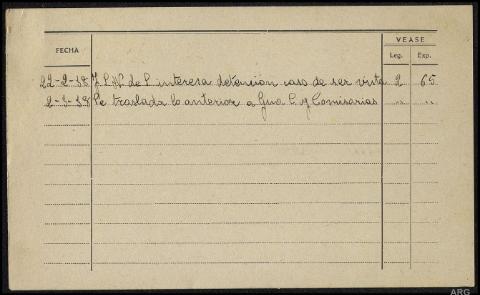 VEASE
FECHA Leg. Exp.
22-2-38 J. S. N. de S. interesa detencion caso de ser vista 2 65
2-3-38 Se traslada lo anterior a Gua C. y Comisarias " "
ARG